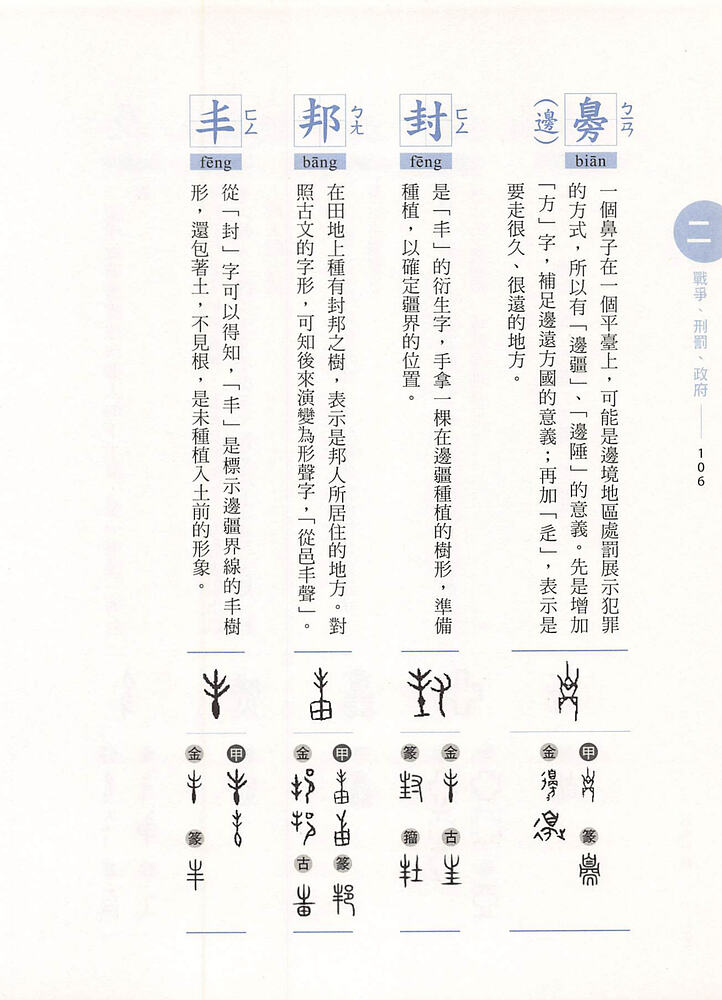 二
戰爭、刑罰、政府
106
臱
ㄅㄧㄢ
(邊)
biān
一個鼻子在一個平臺上,可能是邊境地區處罰展示犯罪
的方式,所以有「邊疆」、「邊陲」的意義。先是增加
「方」字,補足邊遠方國的意義;再加「辵」,表示是
要走很久、很遠的地方。
甲
篆
金
封
ㄈㄥ
fēng
是「丰」的衍生字,手拿一棵在邊疆種植的樹形,準備
種植,以確定疆界的位置。
金
古
篆
籀
邦
ㄅㄤ
bāng
在田地上種有封邦之樹,表示是邦人所居住的地方。對
照古文的字形,可知後來演變為形聲字,「從邑丰聲」。
甲
篆
金
古
丰
ㄈㄥ
fēng
從「封」字可以得知,「丰」是標示邊疆界線的丰樹
形,還包著土,不見根,是未種植入土前的形象。
甲
金
篆